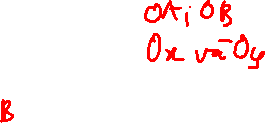 OA; OB
Ox và Oy
B